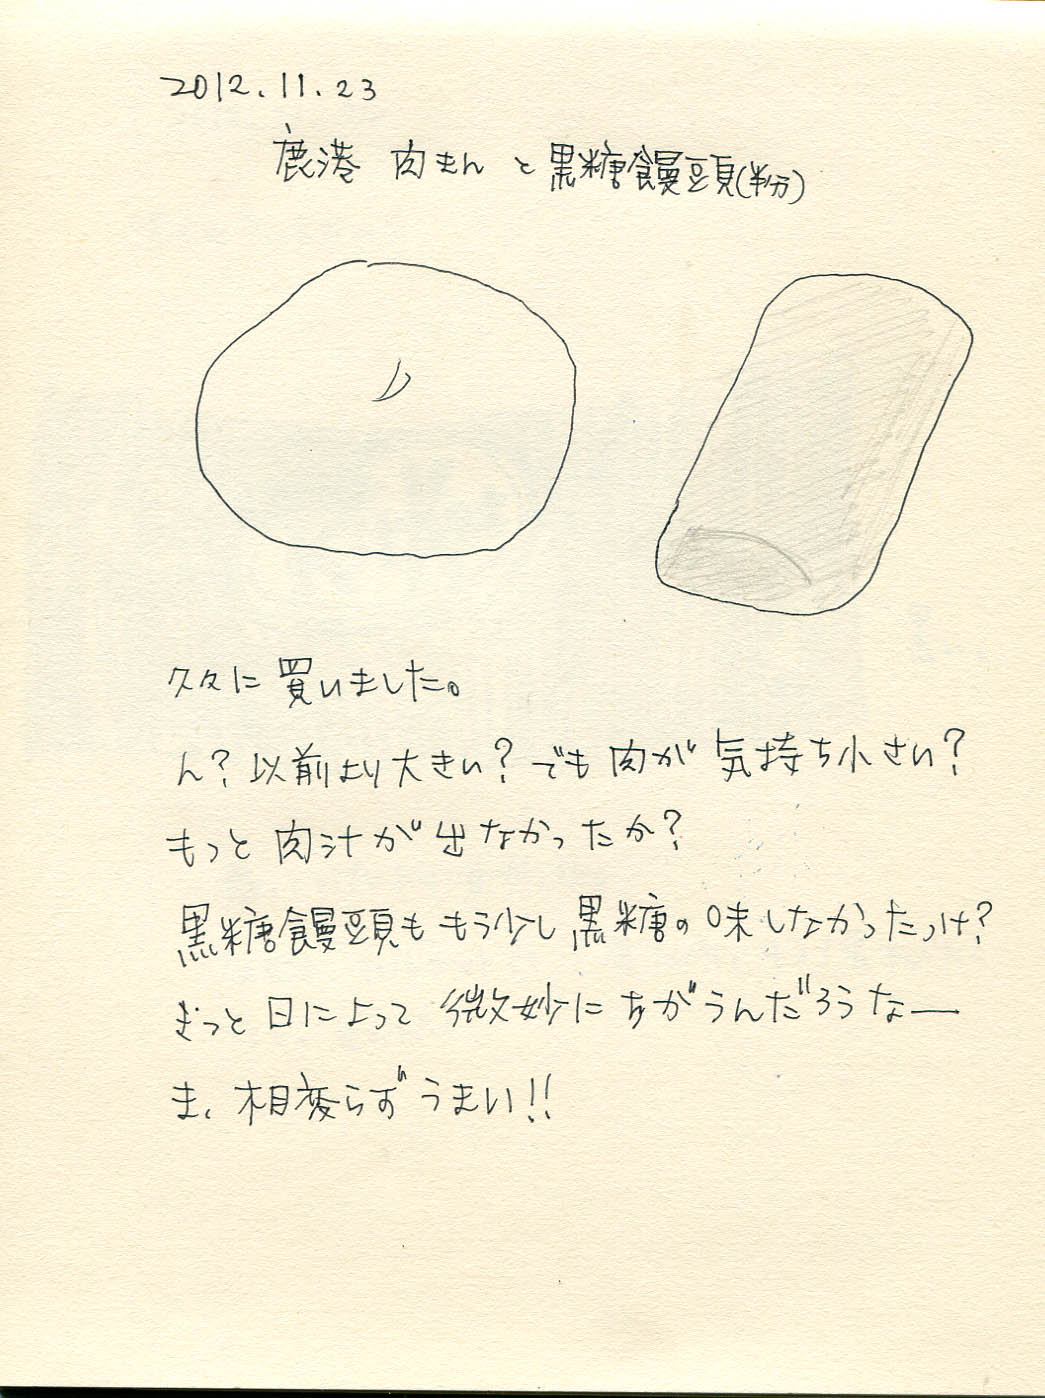 2012.11.23
鹿港 肉まん と黒糖饅頭(半分)
久々に買いました。
ん?以前より大きい?でも肉が気持ち小さい?
もっと肉汁が出なかったか?
黒糖饅頭ももう少し黒糖の味しなかったっけ?
きっと日によって微妙にちがうんだろうなー
ま、相変らずうまい!!